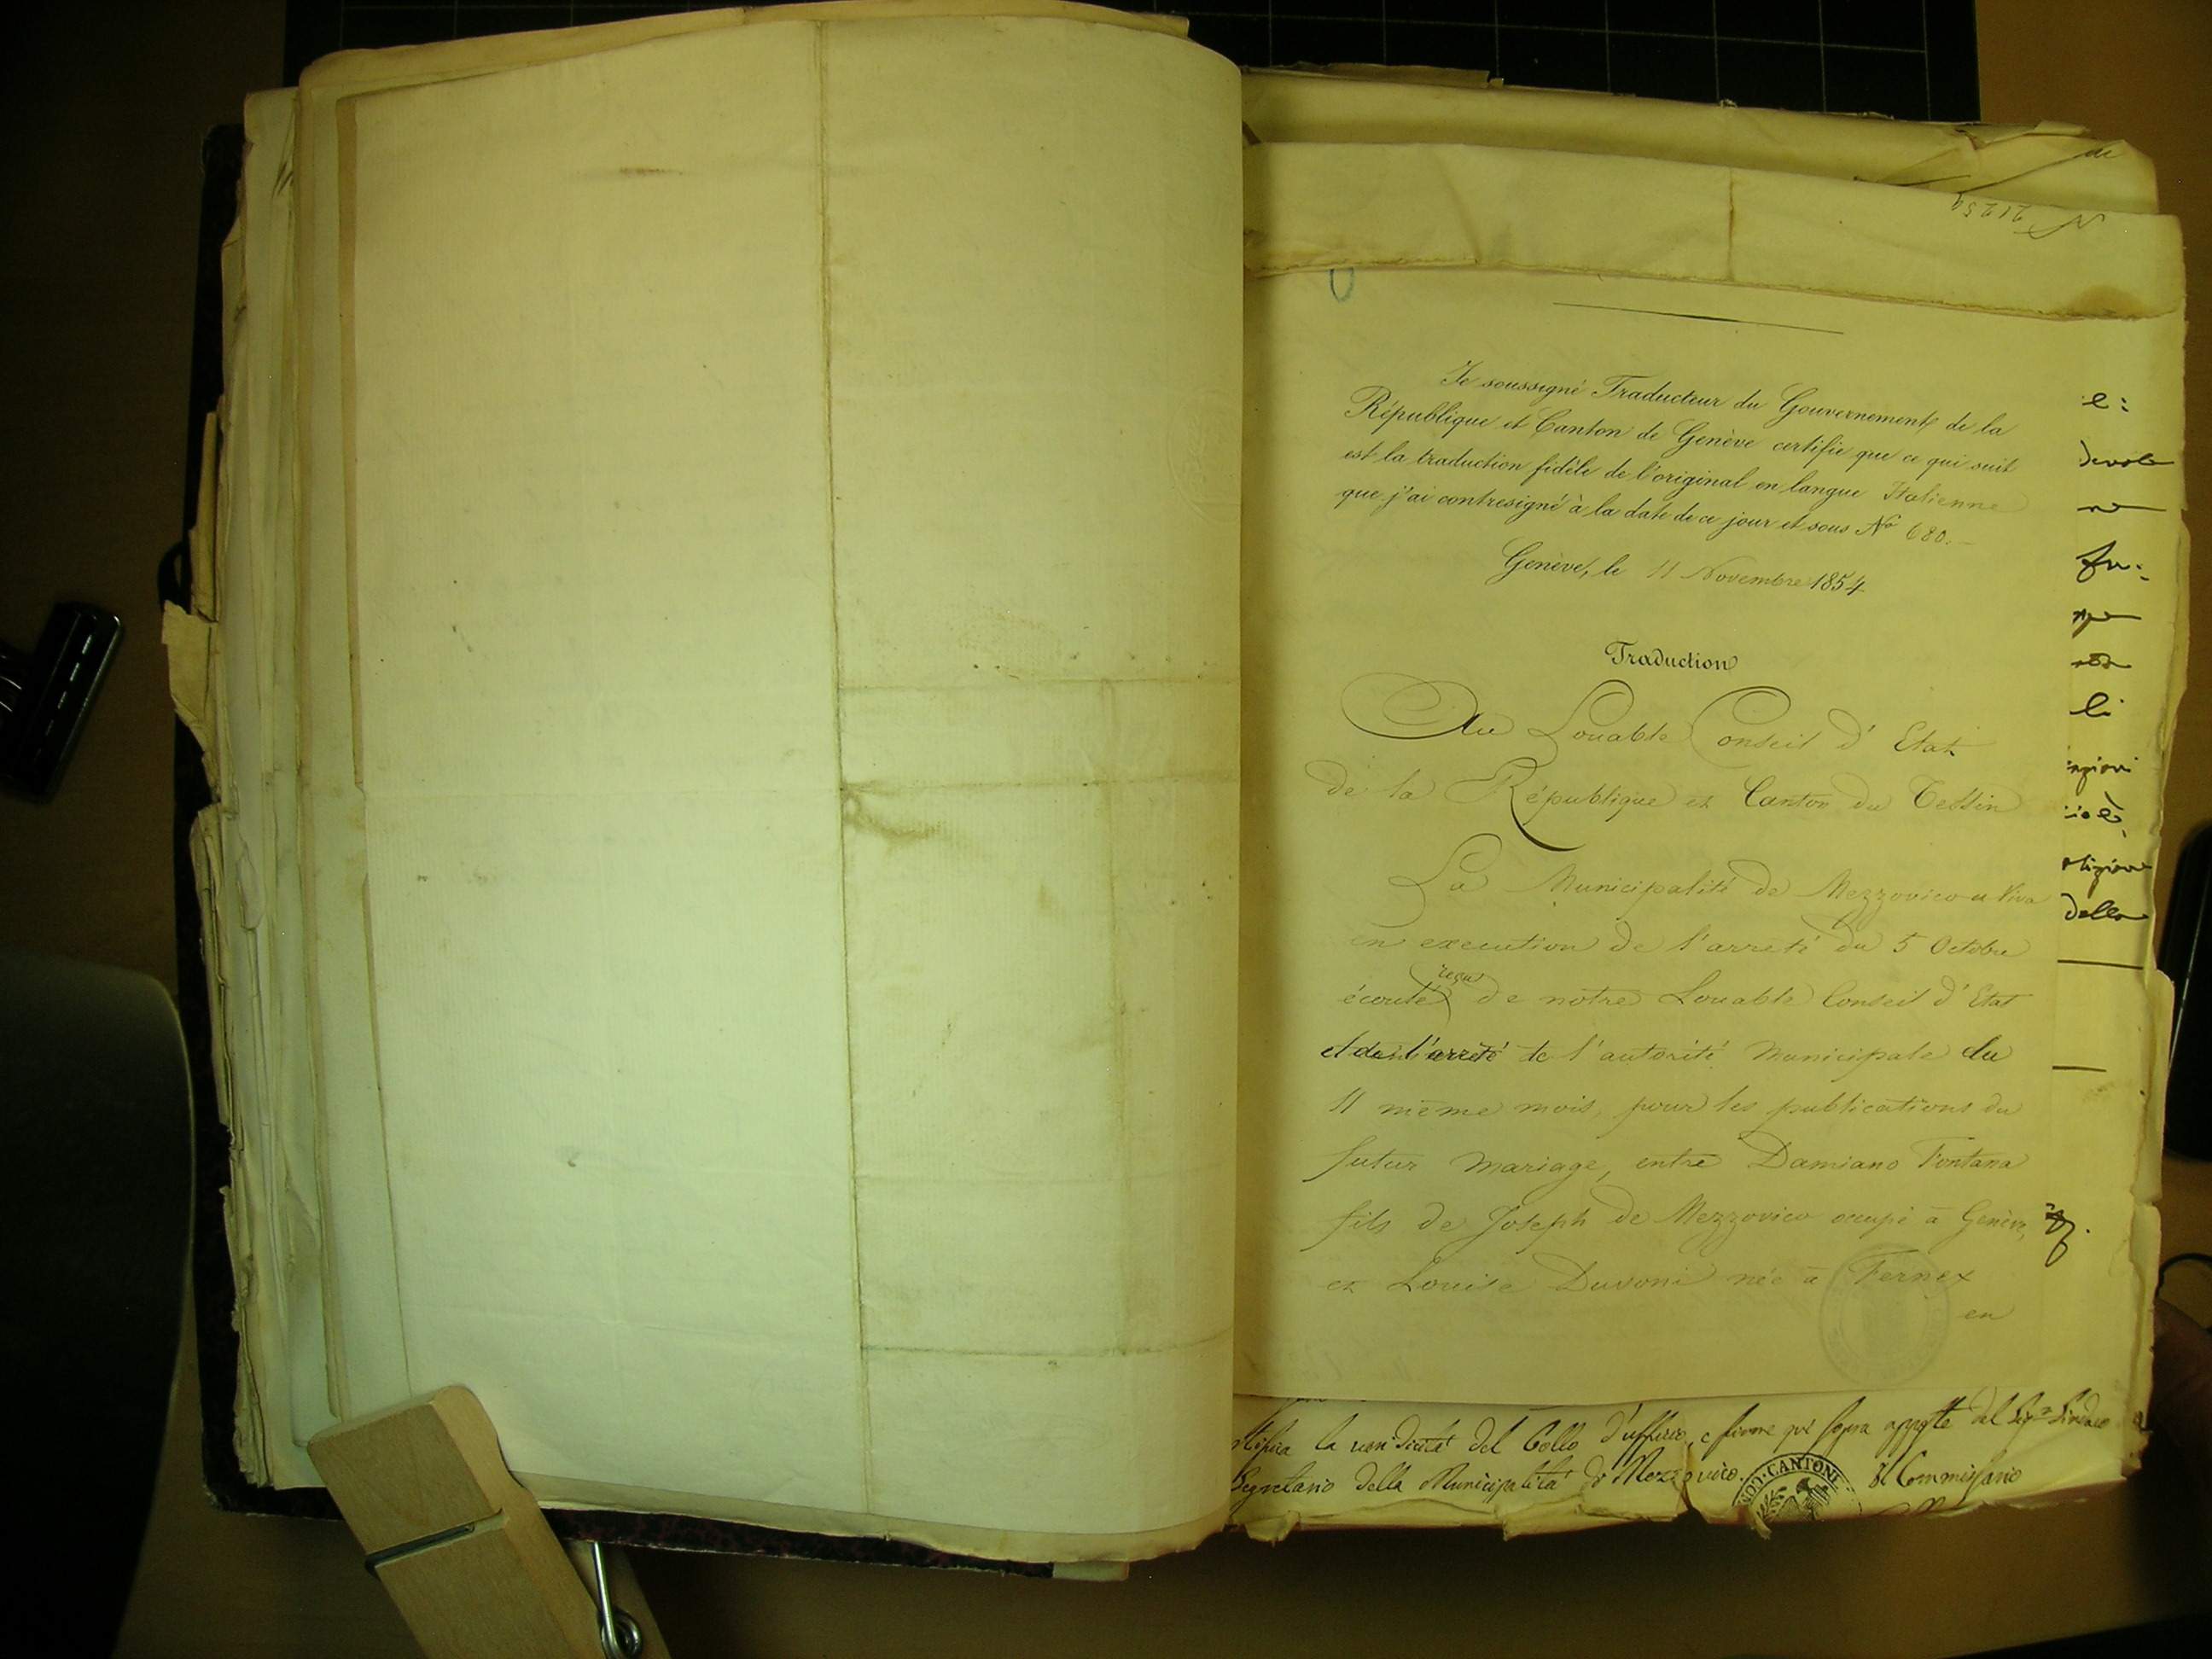 N° 21259
Je soussigné Traducteur du Gouvernement de la
République et Canton de Genève certifie que ce qui suit
est la traduction fidèle de l'original en langue Italienne
que j'ai contresigné à la date de ce jour et sous N° 680.
Genève, le 11 Novembre 1854
Traduction
Au Louable Conseil d'Etat
de la République et Canton du Tessin
La Municipalité de Mezzovico et Vira
en execution de l'arreté du 5 Octobre
reçu
écouté de notre Louable Conseil d'Etat
et de l'arreté de l'autorité Municipale du
11 même mois, pour les publications du
futur mariage, entre Damiano Fontana
fils de Joseph de Mezzovico occupé à Genève,
et Louise Duvoni née à Fernex
en
e:
devole
ne
fu:
li
igione
della
la veridicità del bollo d'ufficio, e firme quì sopra apposte dal Sigr Sindaco
Segretario della Municipalità di Mezzovico. Il Commissario
CANTONE